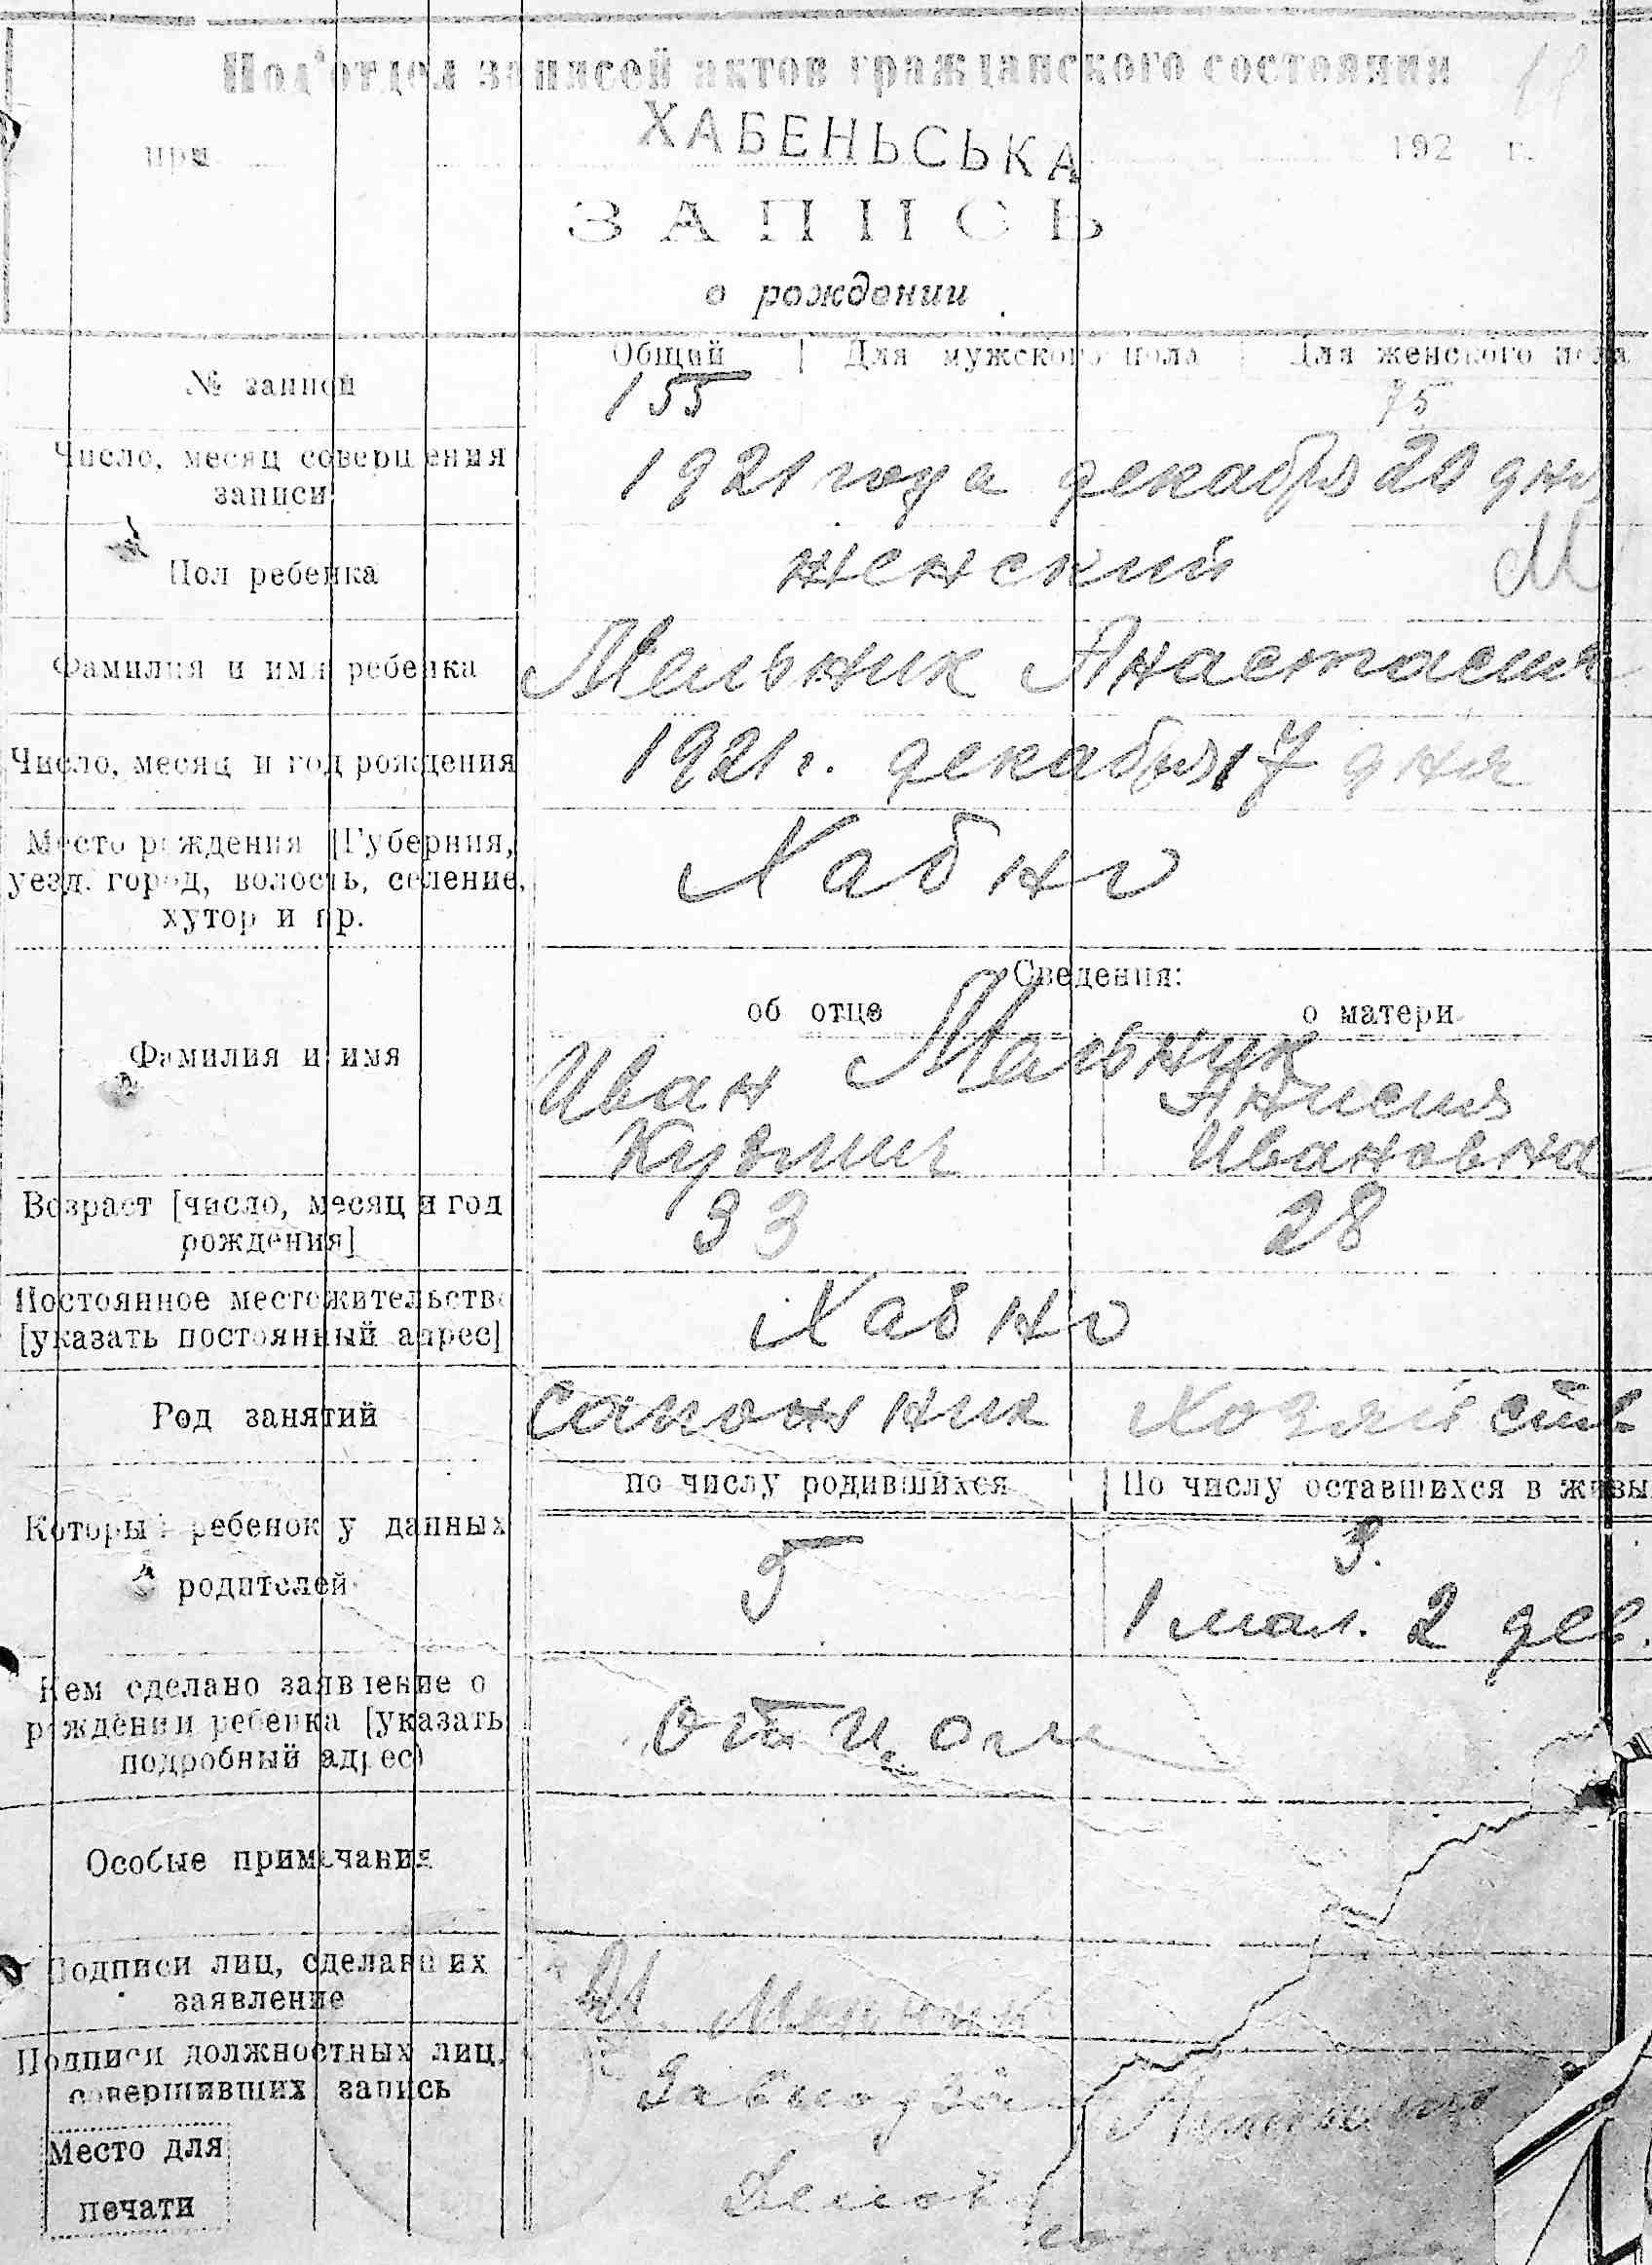 Под'отдел записей актов гражданского состояния
18
при ХАБЕНЬСЬКА 192 г.
ЗАПИСЬ
о рождении
№ записи
Общий | Для мужского пола | Для женского пола
155 75
Число, месяц совершения
записи
1921 года декабря 20 дня
Пол ребенка
женский М
Фамилия и имя ребенка
Мельник Анастасия
Число, месяц и год рождения
1921 г. декабря 17 дня
Место рождения [Губерния,
уезд. город, волость, селение,
хутор и пр.
Хабно
Сведения:
об отце о матери
Фамилия и имя
Мельник
Иван Анисия
Кузьмич Ивановна
Возраст [число, месяц и год
рождения]
33 28
Постоянное местожительство
[указать постоянный адрес]
Хабно
Род занятий
сапожник Хозяйств
по числу родившихся | По числу оставшихся в живы
Который ребенок у данных
родителей
5 3.
1 мал. 2 дев.
Кем сделано заявление о
рождении ребенка [указать
подробный адрес)
отцом
Особые примечания
Подписи лиц, сделавших
заявление
И. Мельник
Подписи должностных лиц,
совершивших запись
Завподзаг
Место для
печати